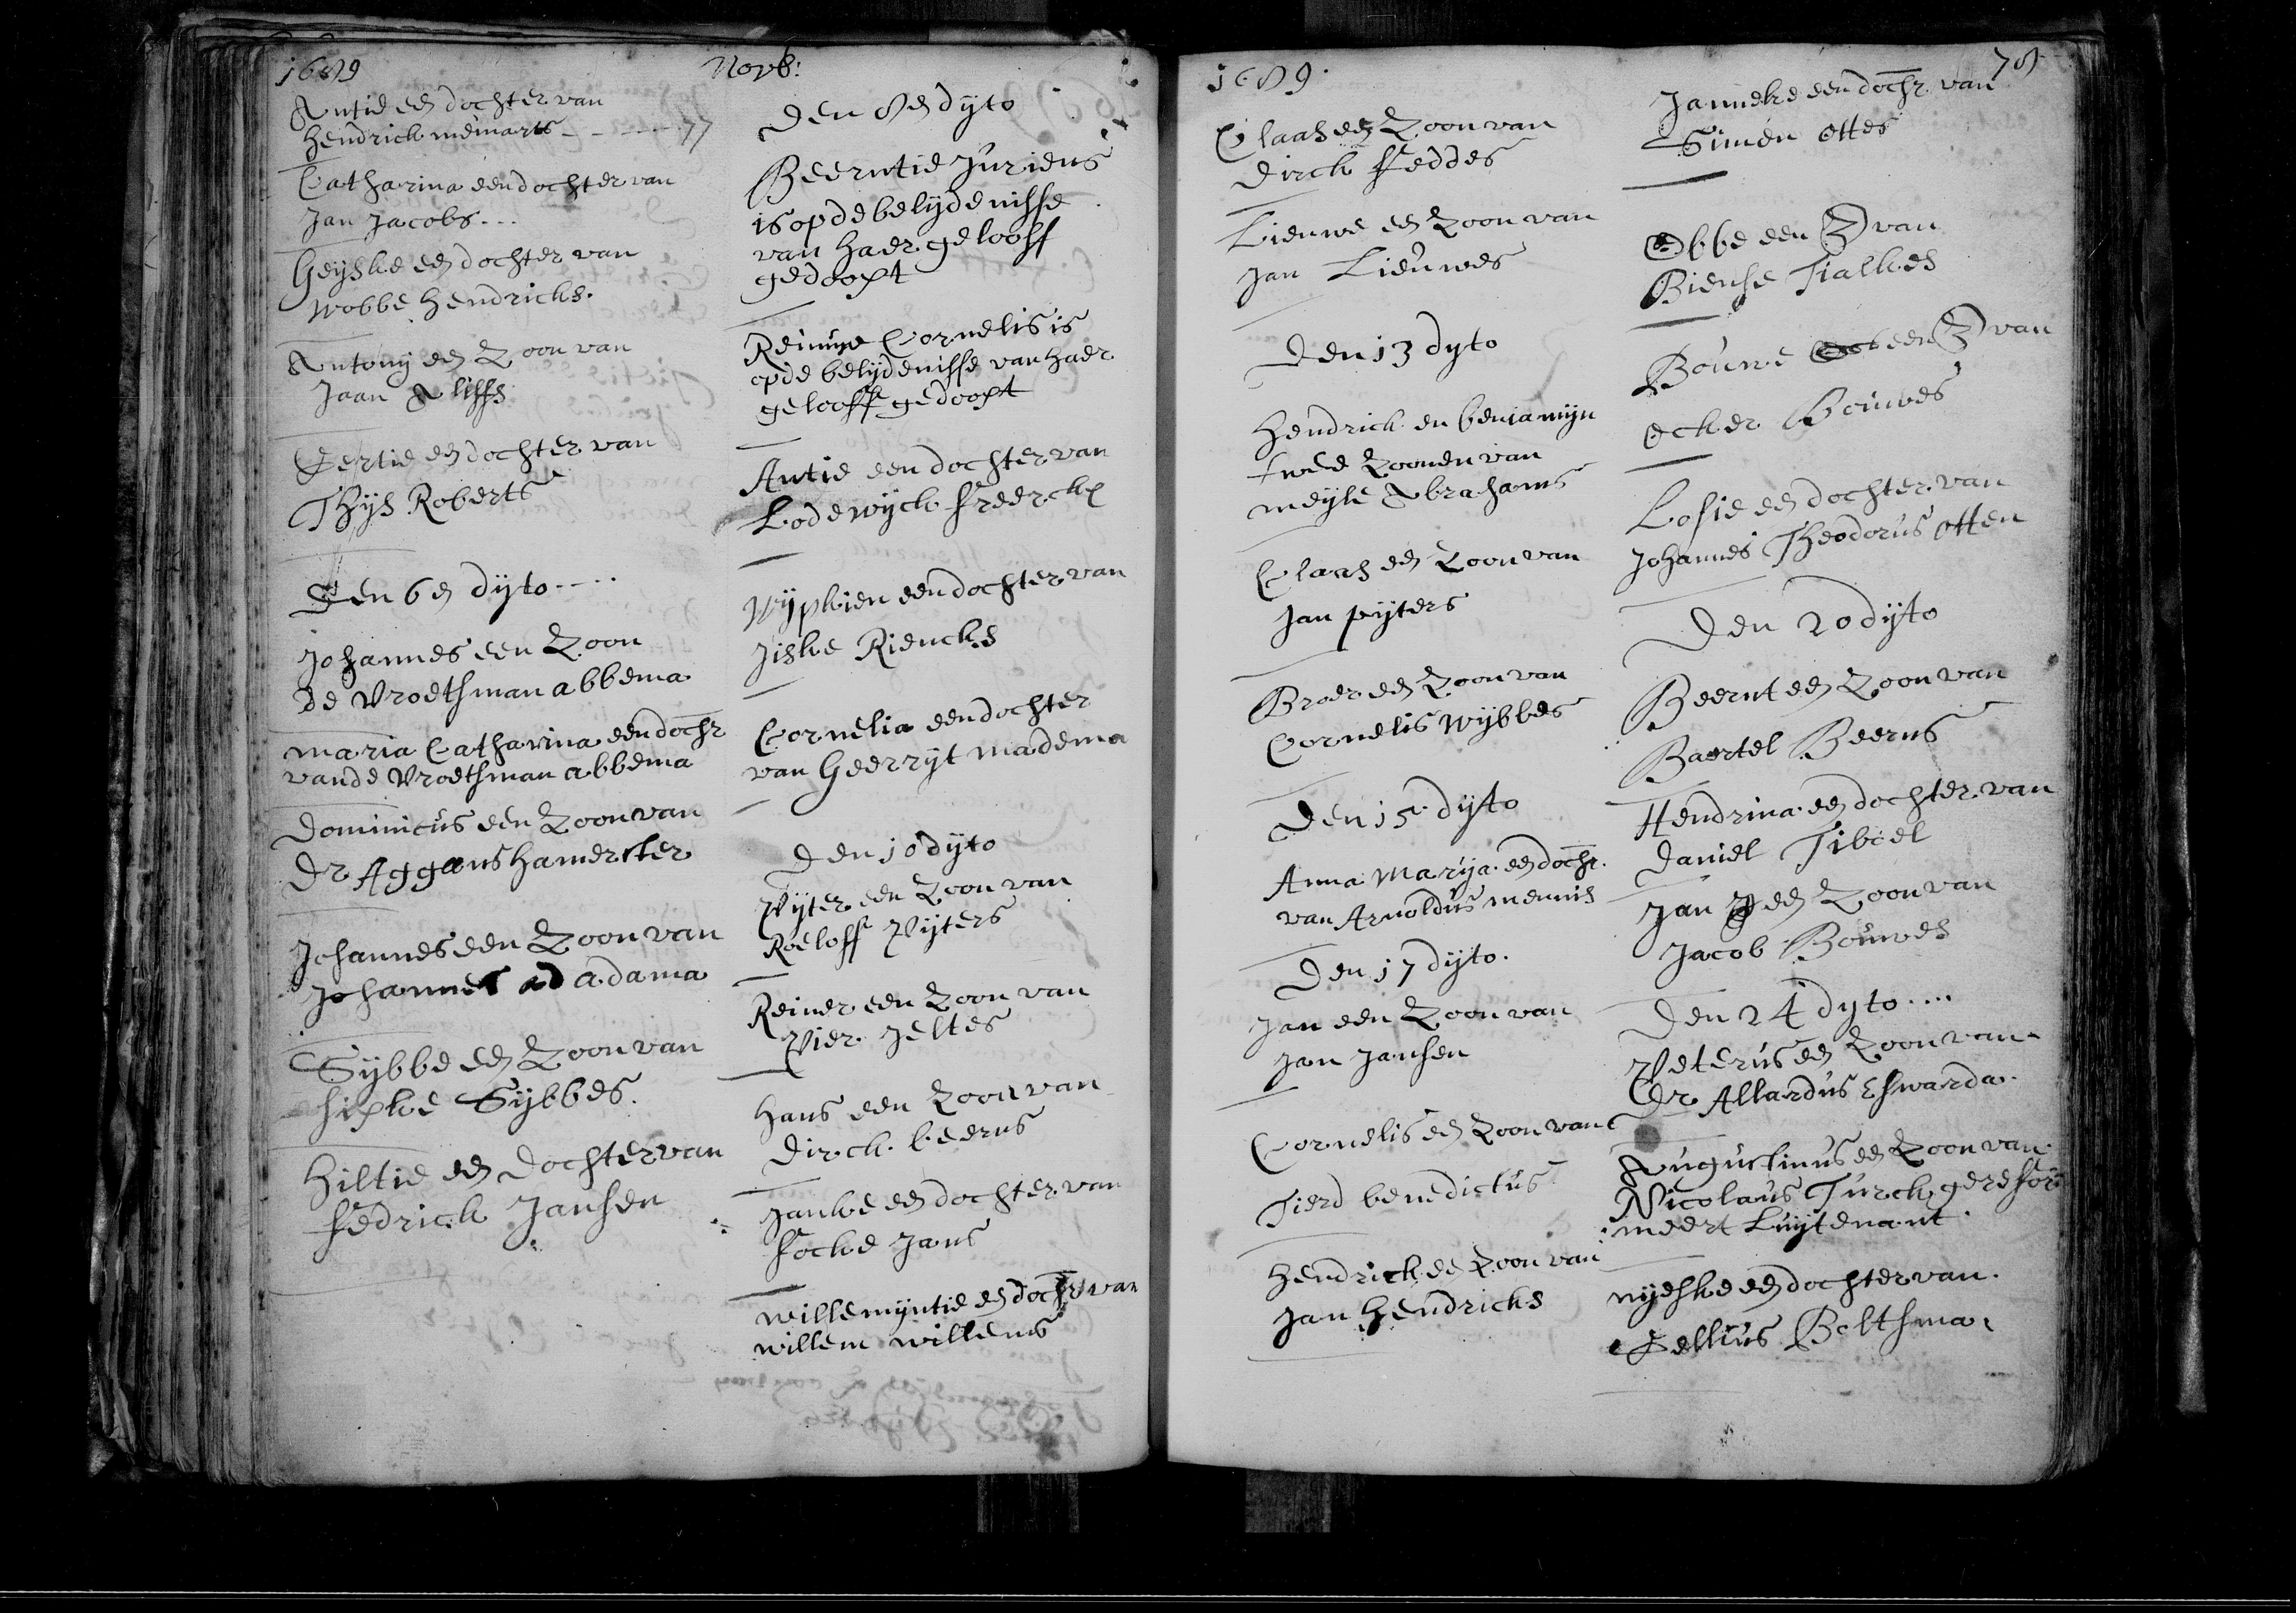 1689
Novb:
Antie een dochter van
Hendrick meinarts - - - - 77
Catharina een dochter van
Jan Jacobs...
Geijske een dochter van
Wobbe Hendricks.
Antony een Zoon van
Jaan Aliffs
Eertie een dochter van
Thijs Roberts
Den 6en dyto.....
Johannes een Zoon
de Vroethman abbema
Maria Catharina een dochr
vande Vroethman abbema
Dominicus een Zoon van
Dr Aggaus Hamerster
Johannes een Zoon van
Johannes ad adama
Sybbe een Zoon van
sipke Sybbes.
Hiltie een Dochter van
fedrick Jansen
Den 8en dyto
Beerntie Juriens
is op de belijdenisse
van haer gelooff
gedoopt
Reinue Cornelis is
op de belijdenisse van haer
gelooff gedoopt
Antie een dochter van
Lodewyck freercks
Wijpkien een dochter van
Jiske Riencks
Cornelia een dochter
van Geerryt madema
Den 10 dyto
Pijter een Zoon van
Roeloff Pijters
Reiner een Zoon van
Pier Jeltes
Hans een Zoon van
Dirck beerns
Janke een dochter van
focke Jans
Willemijntie een dochr van
willem willems
1689.
78.
Claas een Zoon van
Dirck feddes
Lieuwe een Zoon van
Jan Lieuwes
Den 13 dyto
Hendrick en beniamijn
twee Zoonen van
meyle Abrahams
Claas een Zoon van
Jan pijters
Broer een Zoon van
Cornelis Wybbes
Den 15 dyto
Anna Marija een dochr.
van Arnoldus mennis
Den 17 dijto.
Jan een Zoon van
Jan Jansen
Cornelis een Zoon van
Tierd benedictus
Hendrick een Zoon van
Jan Hendricks
Janneke een dochr van
Simen ottes
Obbe een Z van
Biense Tialkes
Bouwe een Z van
ocker Bouwes
Losie een dochter van
Johannes Theodorus otten
Den 20 dyto
Beernt een Zoon van
Baertel Beerns
Hendrina een dochter van
Daniel Tibcel
Jan een Zoon van
Jacob Bouwes
Den 24 dyto....
Peterus een Zoon van
Dr Allardus Eswarda.
Augustinus een Zoon van
Nicolaus Turck gerefor
:meert Luijtenant.
nijeske een dochter van.
Gellius Boltsma.